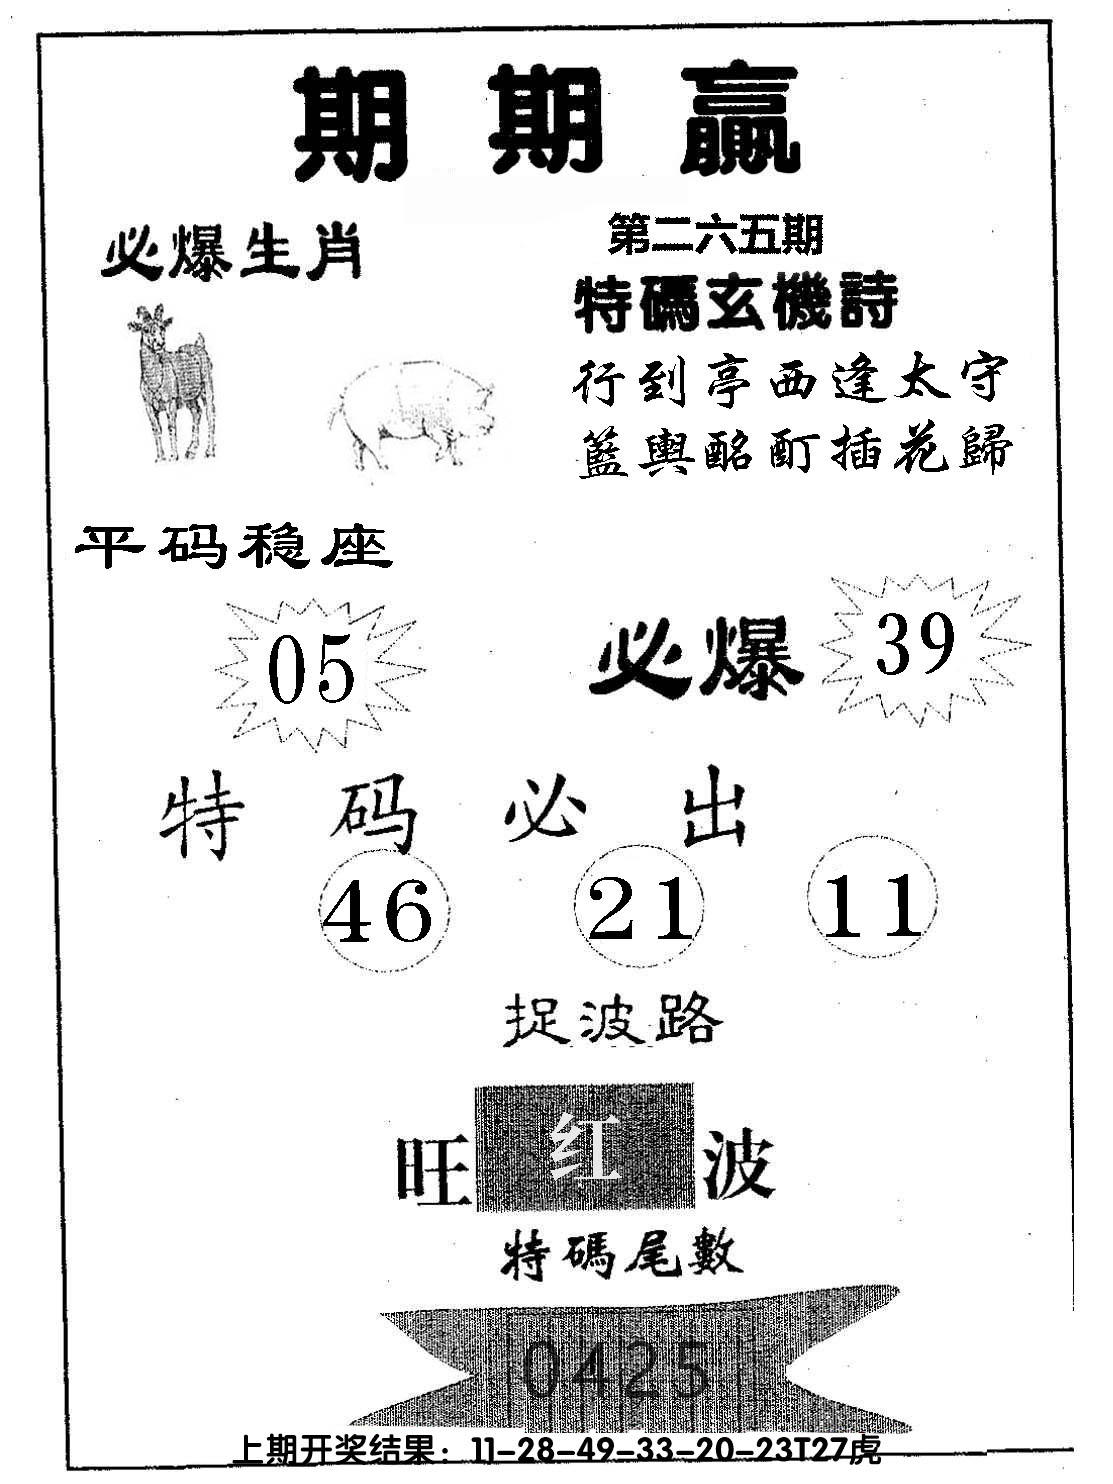 期期赢
必爆生肖
第二六五期
特碼玄機詩
行到亭西逢太守
籃輿酩酊插花歸
平码稳座
05
必爆
39
特码必出
46 21 11
捉波路
旺红波
特碼尾數
0425
上期开奖结果：11-28-49-33-20-23T27虎